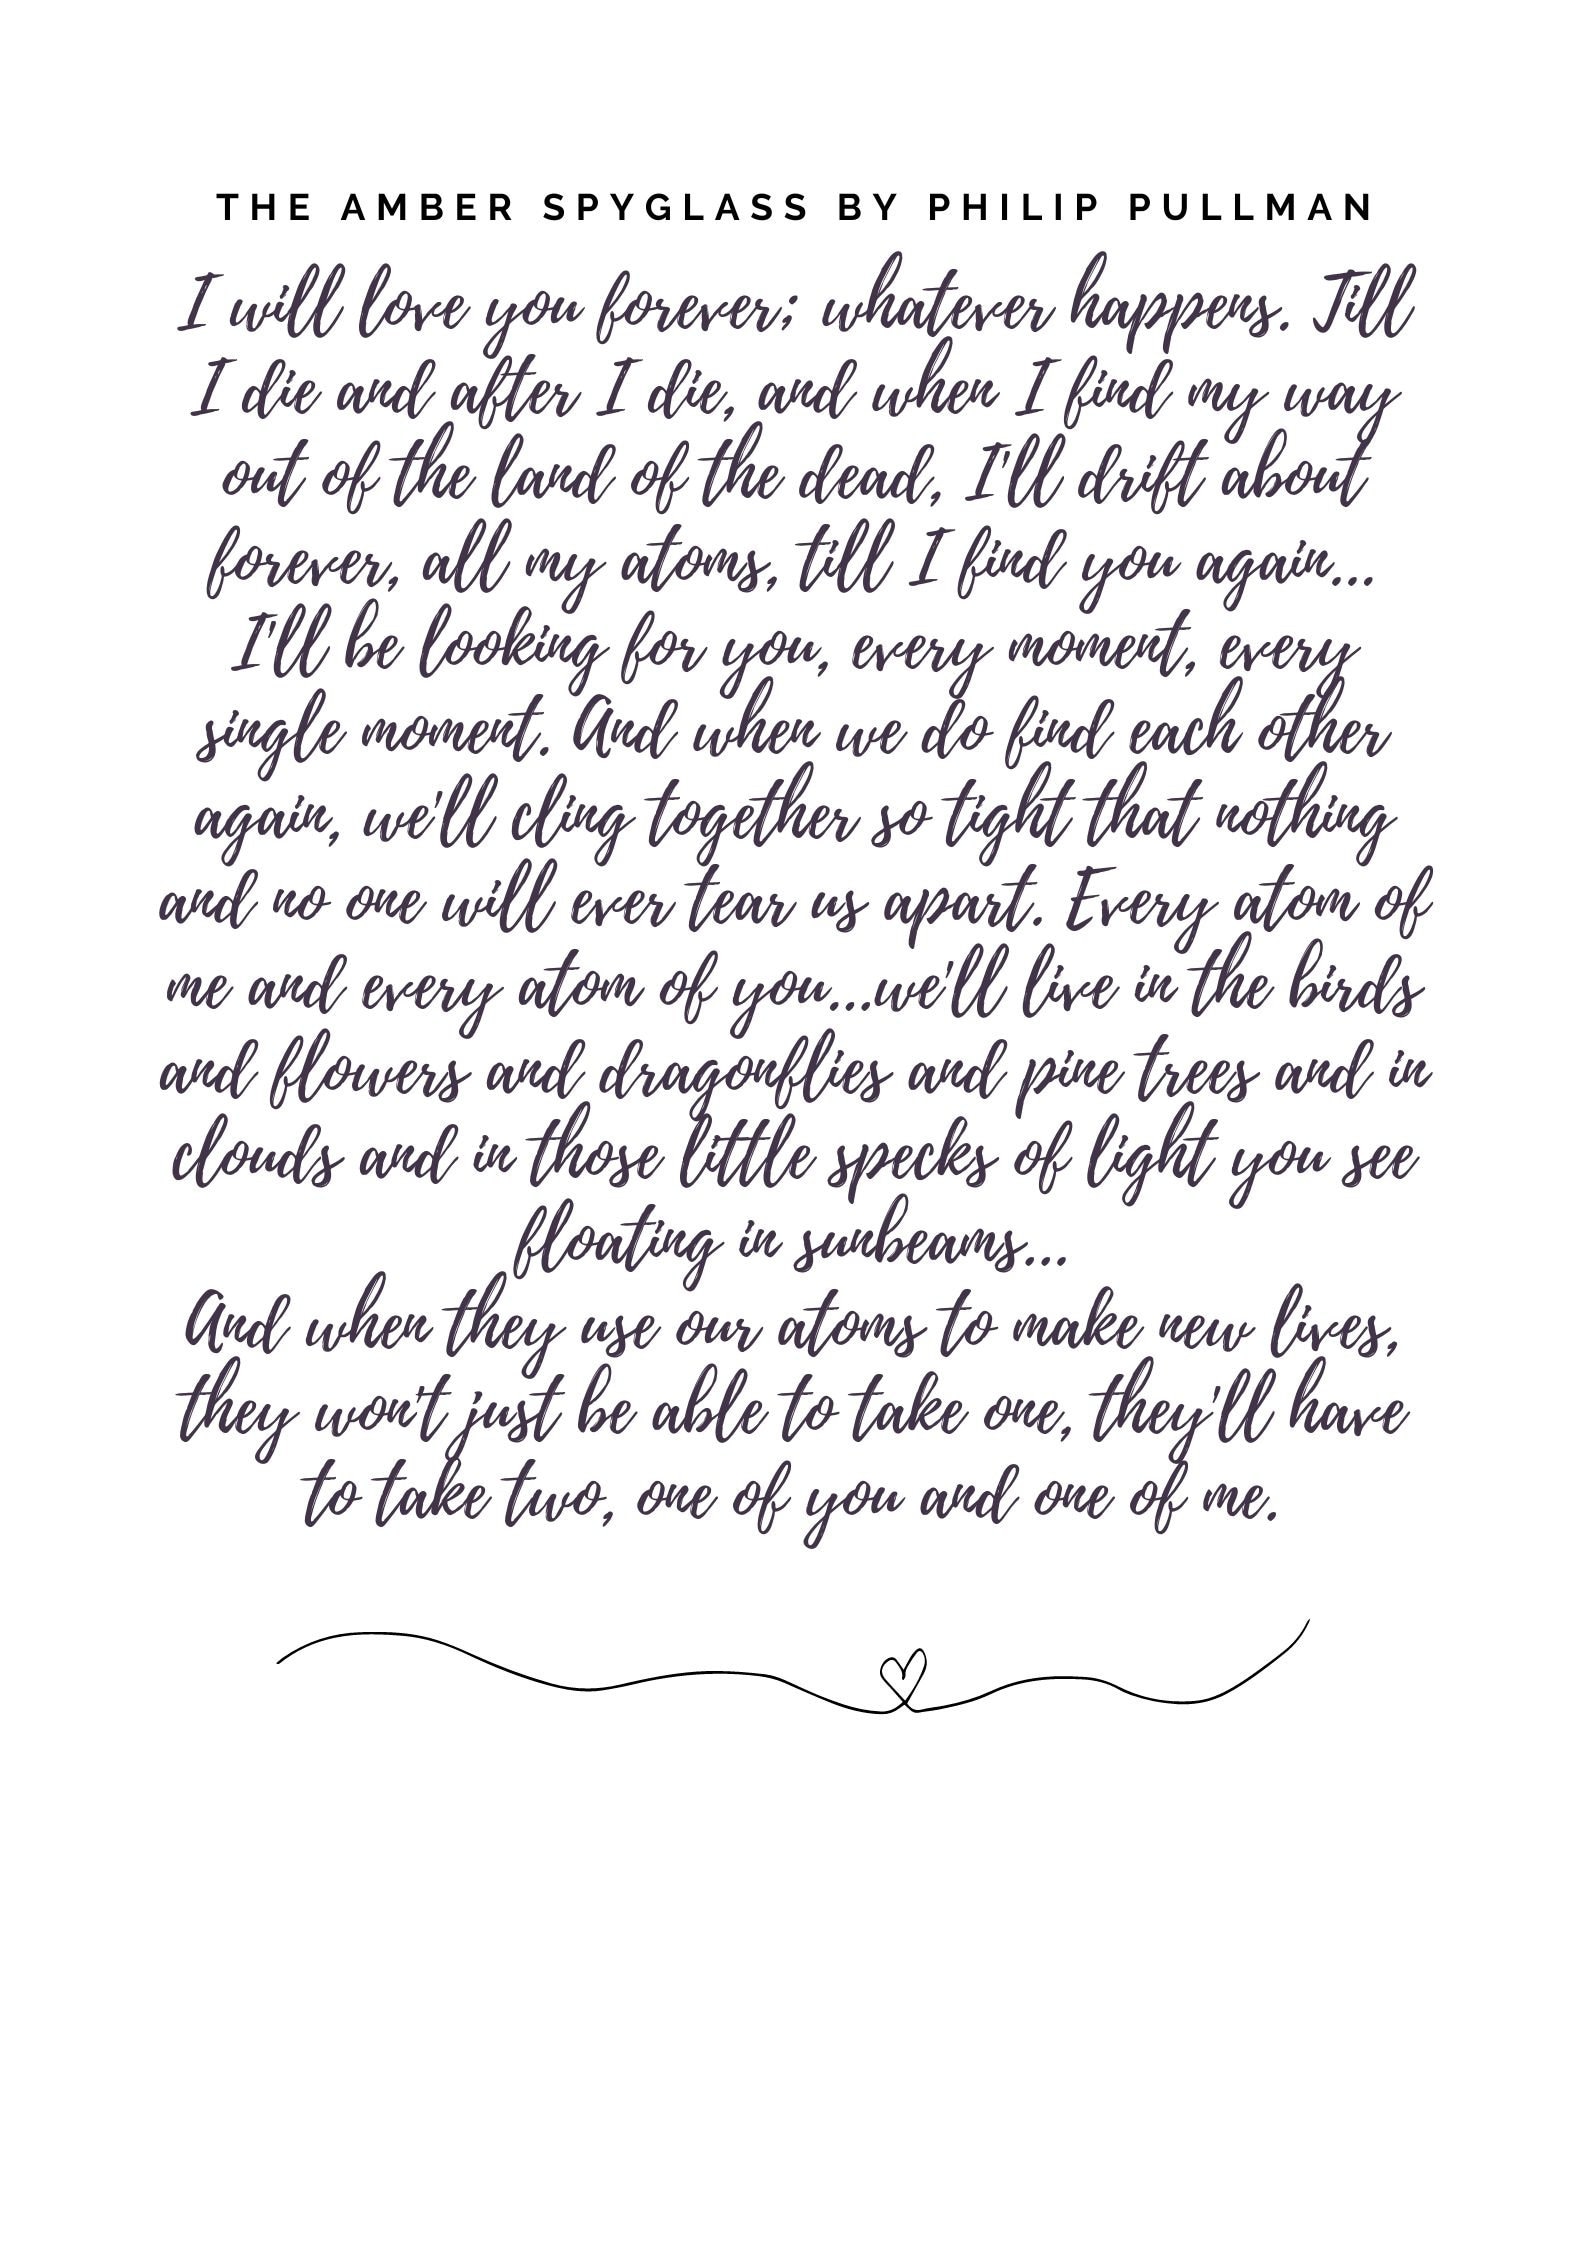 THE AMBER SPYGLASS BY PHILIP PULLMAN
I will love you forever; whatever happens. Till
I die and after I die, and when I find my way
out of the land of the dead, I'll drift about
forever, all my atoms, till I find you again...
I'll be looking for you, every moment, every
single moment. And when we do find each other
again, we'll cling together so tight that nothing
and no one will ever tear us apart. Every atom of
me and every atom of you...we'll live in the birds
and flowers and dragonflies and pine trees and in
clouds and in those little specks of light you see
floating in sunbeams...
And when they use our atoms to make new lives,
they won't just be able to take one, they'll have
to take two, one of you and one of me.